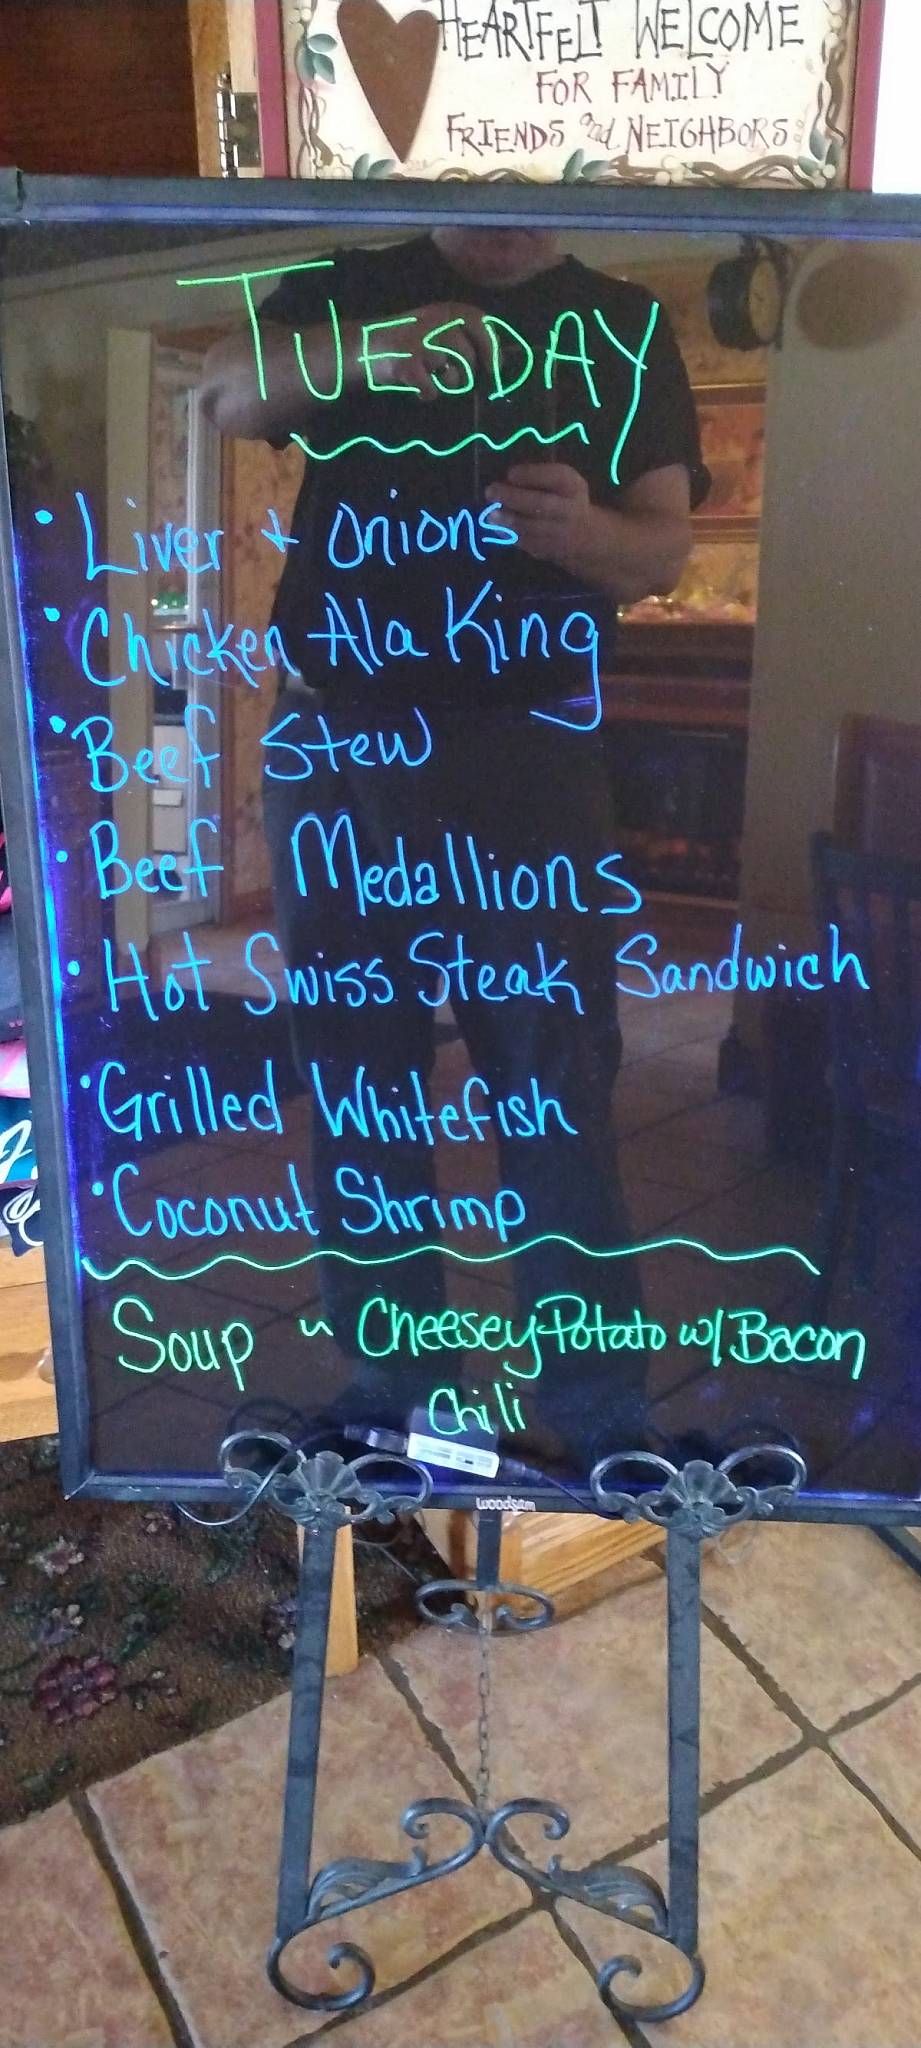 HEARTFELT WELCOME
FOR FAMILY
FRIENDS and NEIGHBORS
TUESDAY
• Liver + Onions
• Chicken Ala King
• Beef Stew
• Beef Medallions
• Hot Swiss Steak Sandwich
• Grilled Whitefish
• Coconut Shrimp
Soup ~ Cheesey Potato w/ Bacon
Chili
woodsam